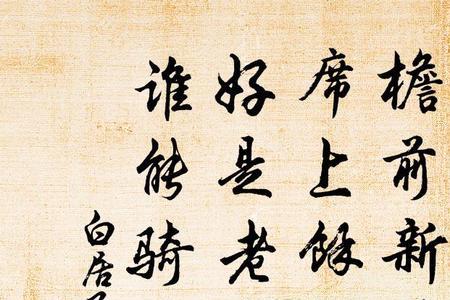 檐前新
席上馀
好是老
谁能骑
白居